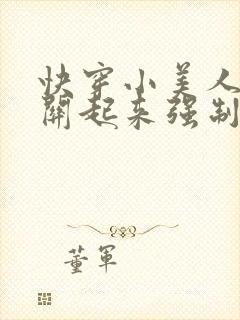 快穿小美人
關起来强制
董军